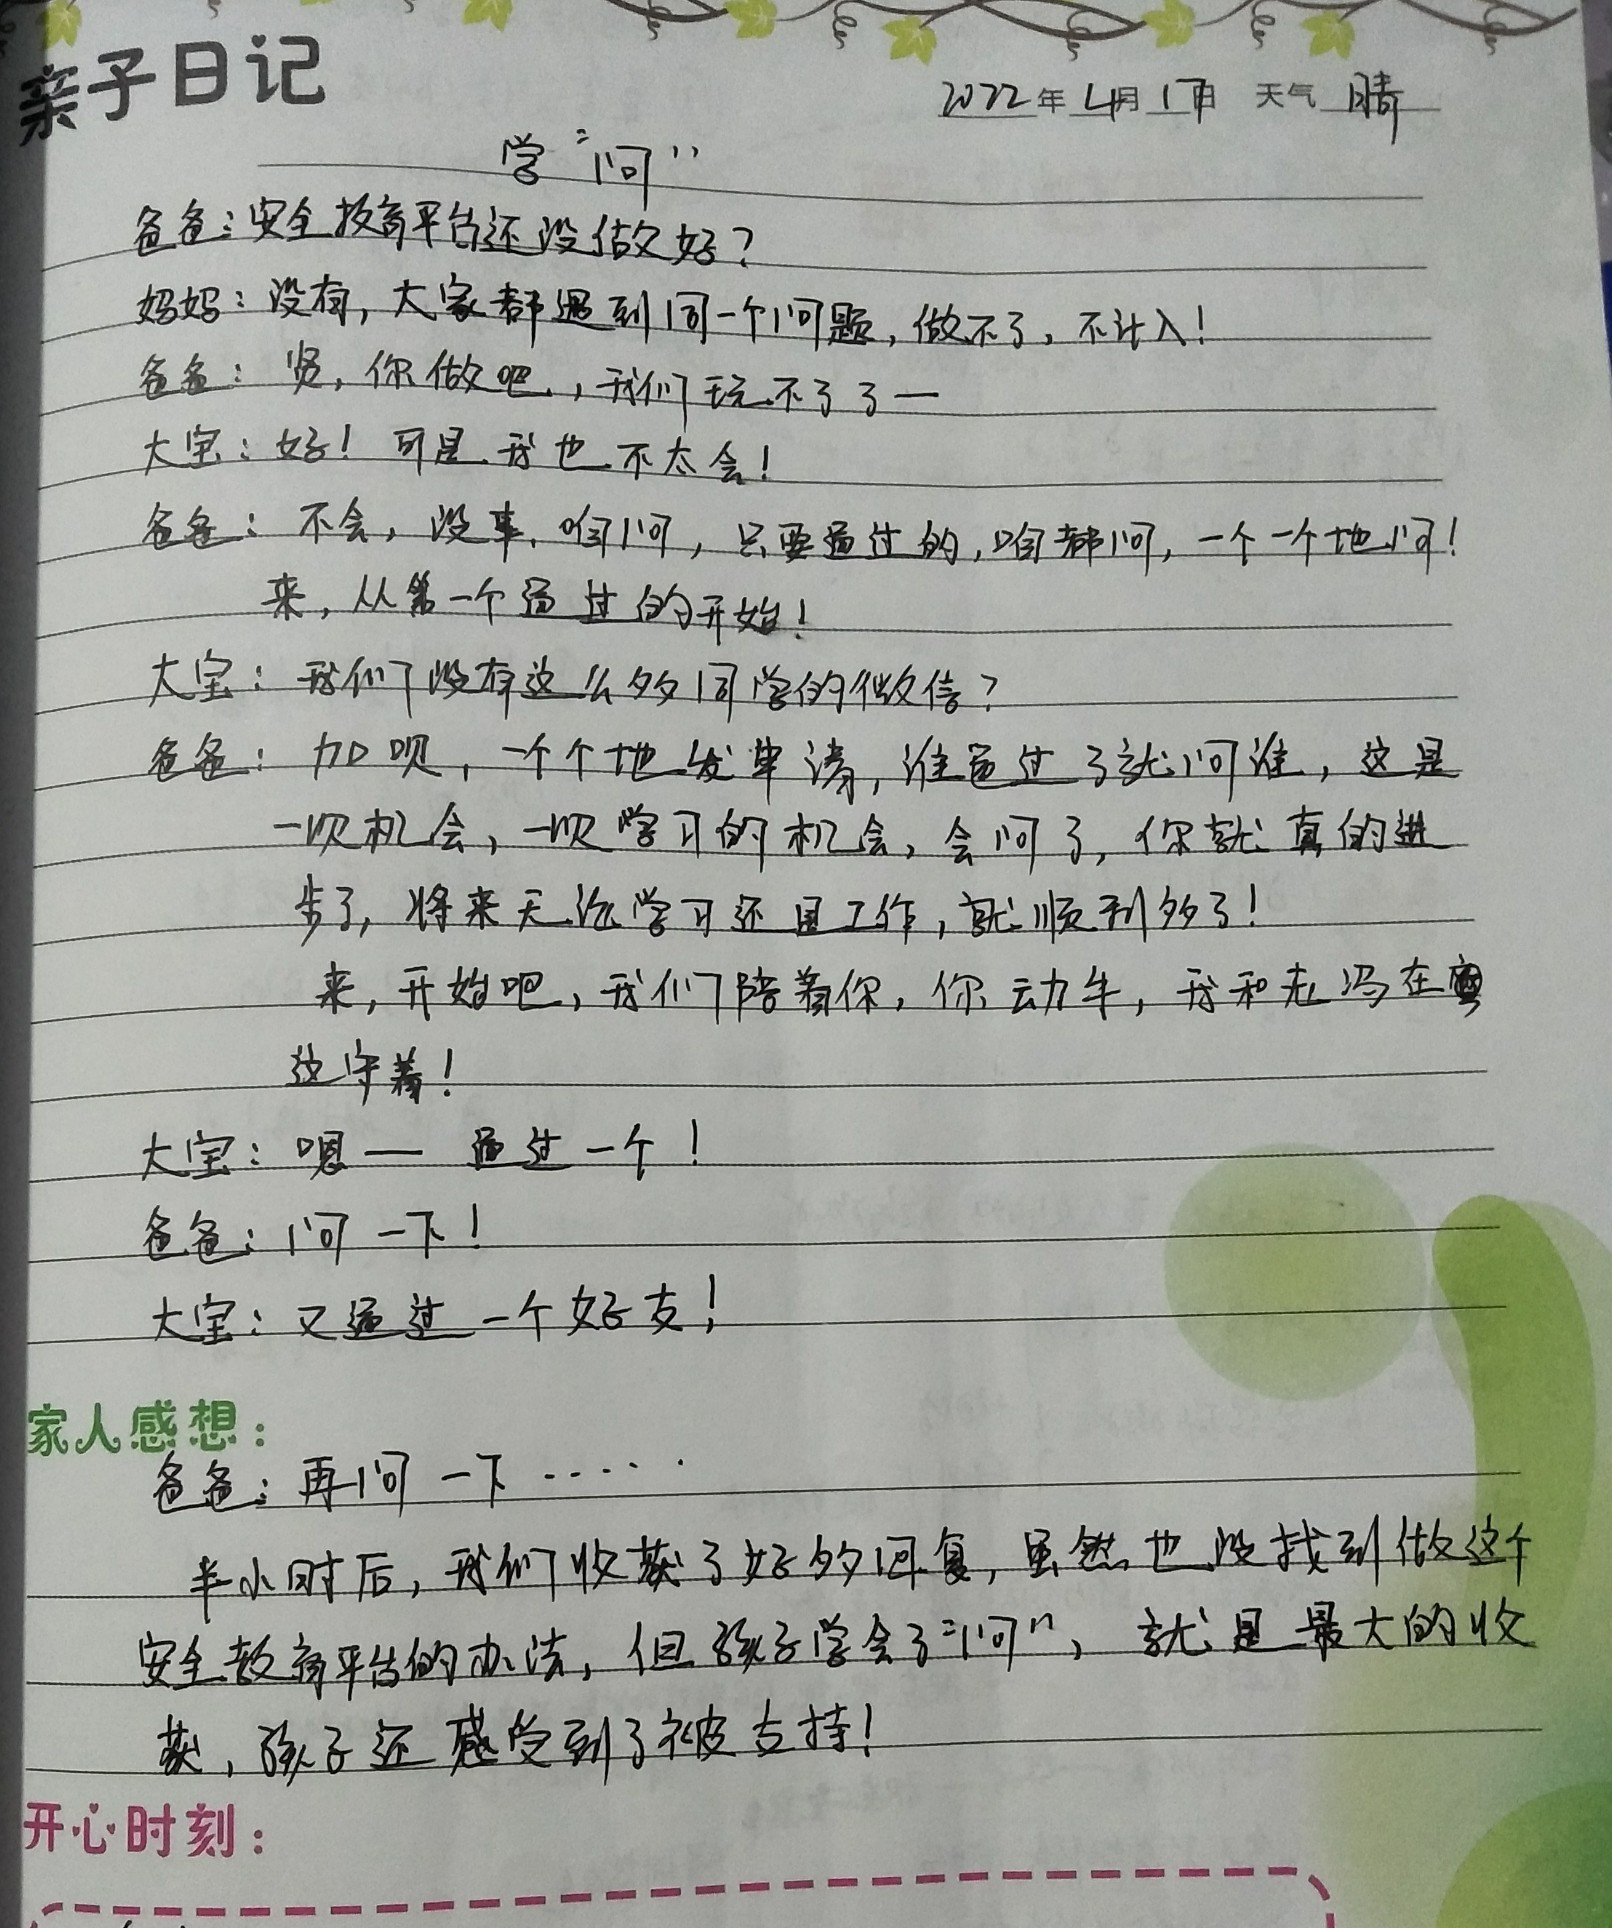 亲子日记
2022年4月17日 天气 晴
学“问”
爸爸：安全教育平台还没做好？
妈妈：没有，大家都遇到同一个问题，做不了，不计入！
爸爸：贤，你做吧，我们玩不了了—
大宝：好！可是我也不太会！
爸爸：不会，没事，咱问，只要通过的，咱都问，一个一个地问！
来，从第一个通过的开始！
大宝：我们没有这么多同学的微信？
爸爸：加呗，一个个地发申请，谁通过了就问谁，这是
一次机会，一次学习的机会，会问了，你就真的进
步了，将来无论学习还是工作，就顺利多了！
来，开始吧，我们陪着你，你动手，我和老冯在
这守着！
大宝：嗯— 通过一个！
爸爸：问一下！
大宝：又通过一个好友！
家人感想：
爸爸：再问一下······
半小时后，我们收获了好多回复，虽然也没找到做这个
安全教育平台的办法，但孩子学会了“问”，就是最大的收
获，孩子还感受到了被支持！
开心时刻：